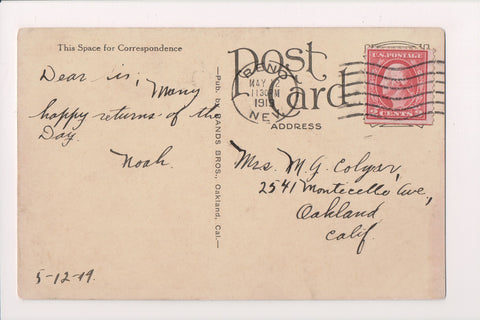 This Space for Correspondence
Post Card
ADDRESS
Dear is; Many
happy returns of the
Day.
Noah.
5-12-19.
—Pub. by RANDS BROS., Oakland, Cal.—
RENO
MAY 12
1130 M
1919
NEV
U.S. POSTAGE
2 CENTS 2
Mrs. M. G. Colyar,
2541 Monticello Ave,
Oakland
Calif.